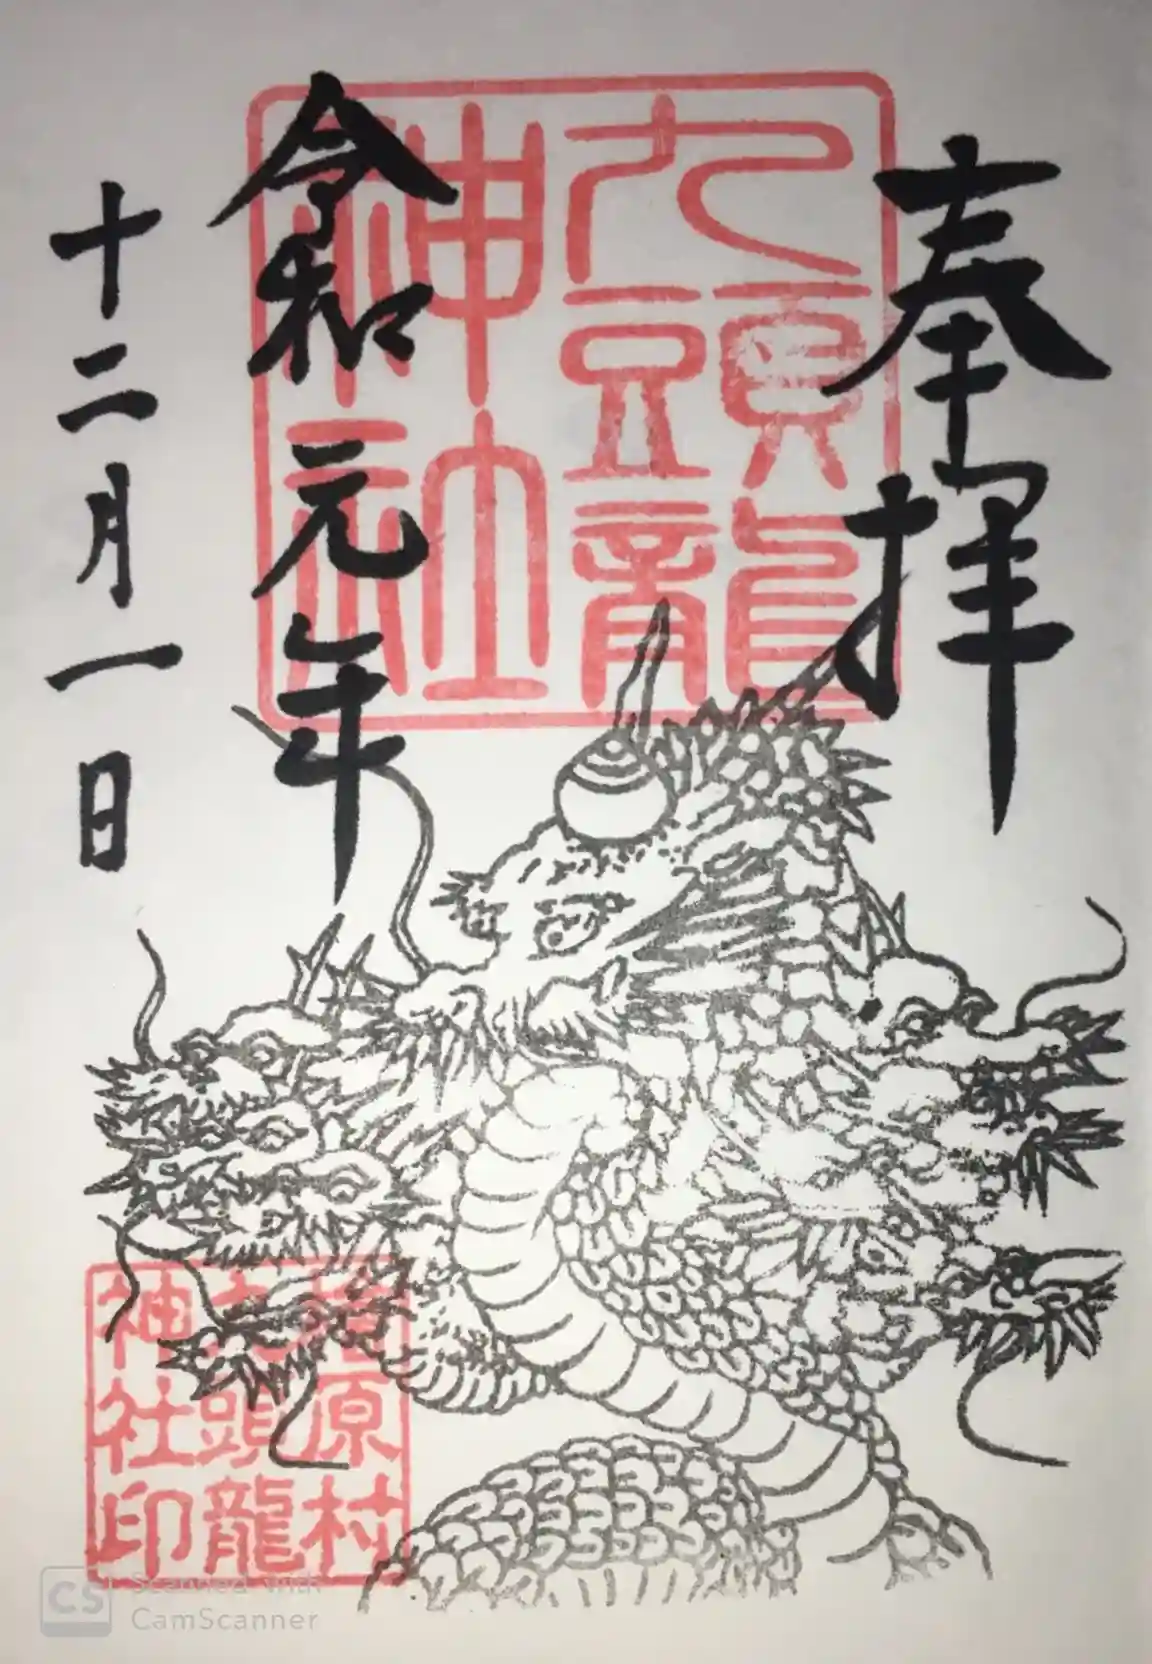 奉拝
九頭龍
神社
令和元年
十二月一日
檜原村
九頭龍
神社印
CS Scanned with
CamScanner